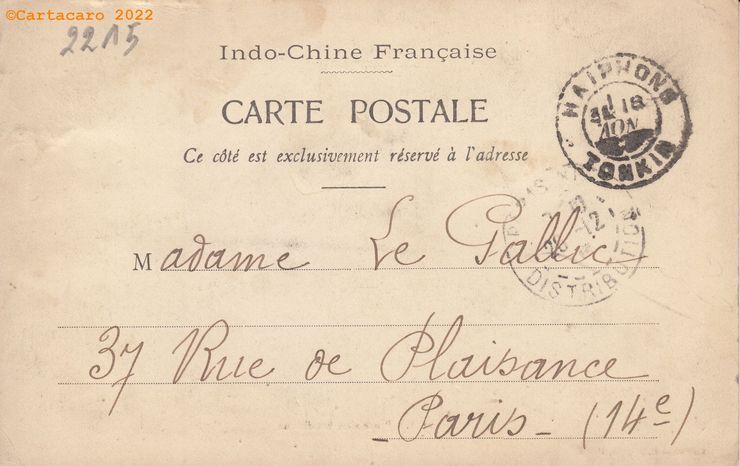 ©Cartacaro 2022
2215
Indo-Chine Française
CARTE POSTALE
Ce côté est exclusivement réservé à l'adresse
HAIPHONG
TONKIN
DISTRIBUTION
Madame Le Gallic
37 Rue de Plaisance
- Paris - (14e)